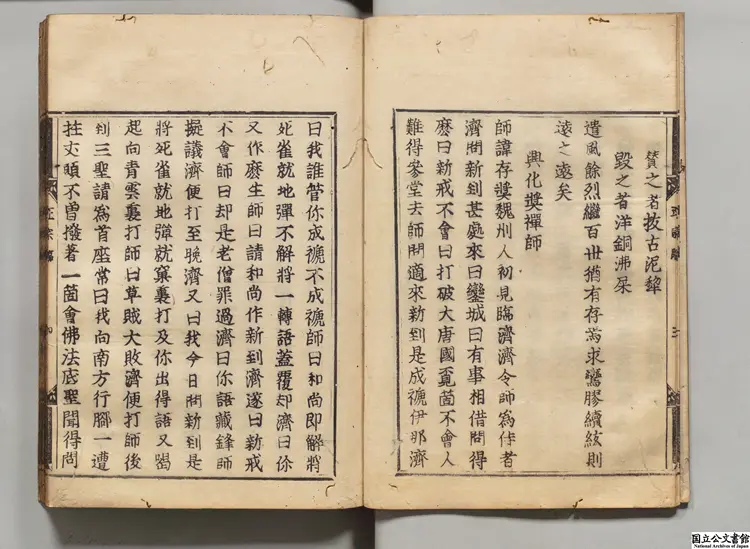 賛之者拔古泥犂
毀之者洋銅沸屎
遺風餘烈繼百世猶有存焉求鸞膠續絃則
遠之遠矣
興化奬禪師
師諱存奬魏州人初見臨濟濟令師爲侍者
濟問新到甚處來曰鑾城曰有事相借問得
麽曰新戒不會曰打破大唐國覓箇不會人
難得參堂去師問適來新到是成褫伊那濟
曰我誰管你成褫不成褫師曰和尚即解將
死雀就地彈不解將一轉語蓋覆却濟曰你
又作麽生師曰請和尚作新到濟遂曰新戒
不會師曰却是老僧罪過濟曰你語藏鋒師
擬議濟便打至晚濟又曰我今日問新到是
將死雀就地彈就窠裏打及你出得語又喝
起向青雲裏打師曰草賊大敗濟便打師後
到三聖請爲首座常曰我向南方行脚一遭
拄丈頭不曾撥著一箇會佛法底聖聞得問
国立公文書館
National Archives of Japan